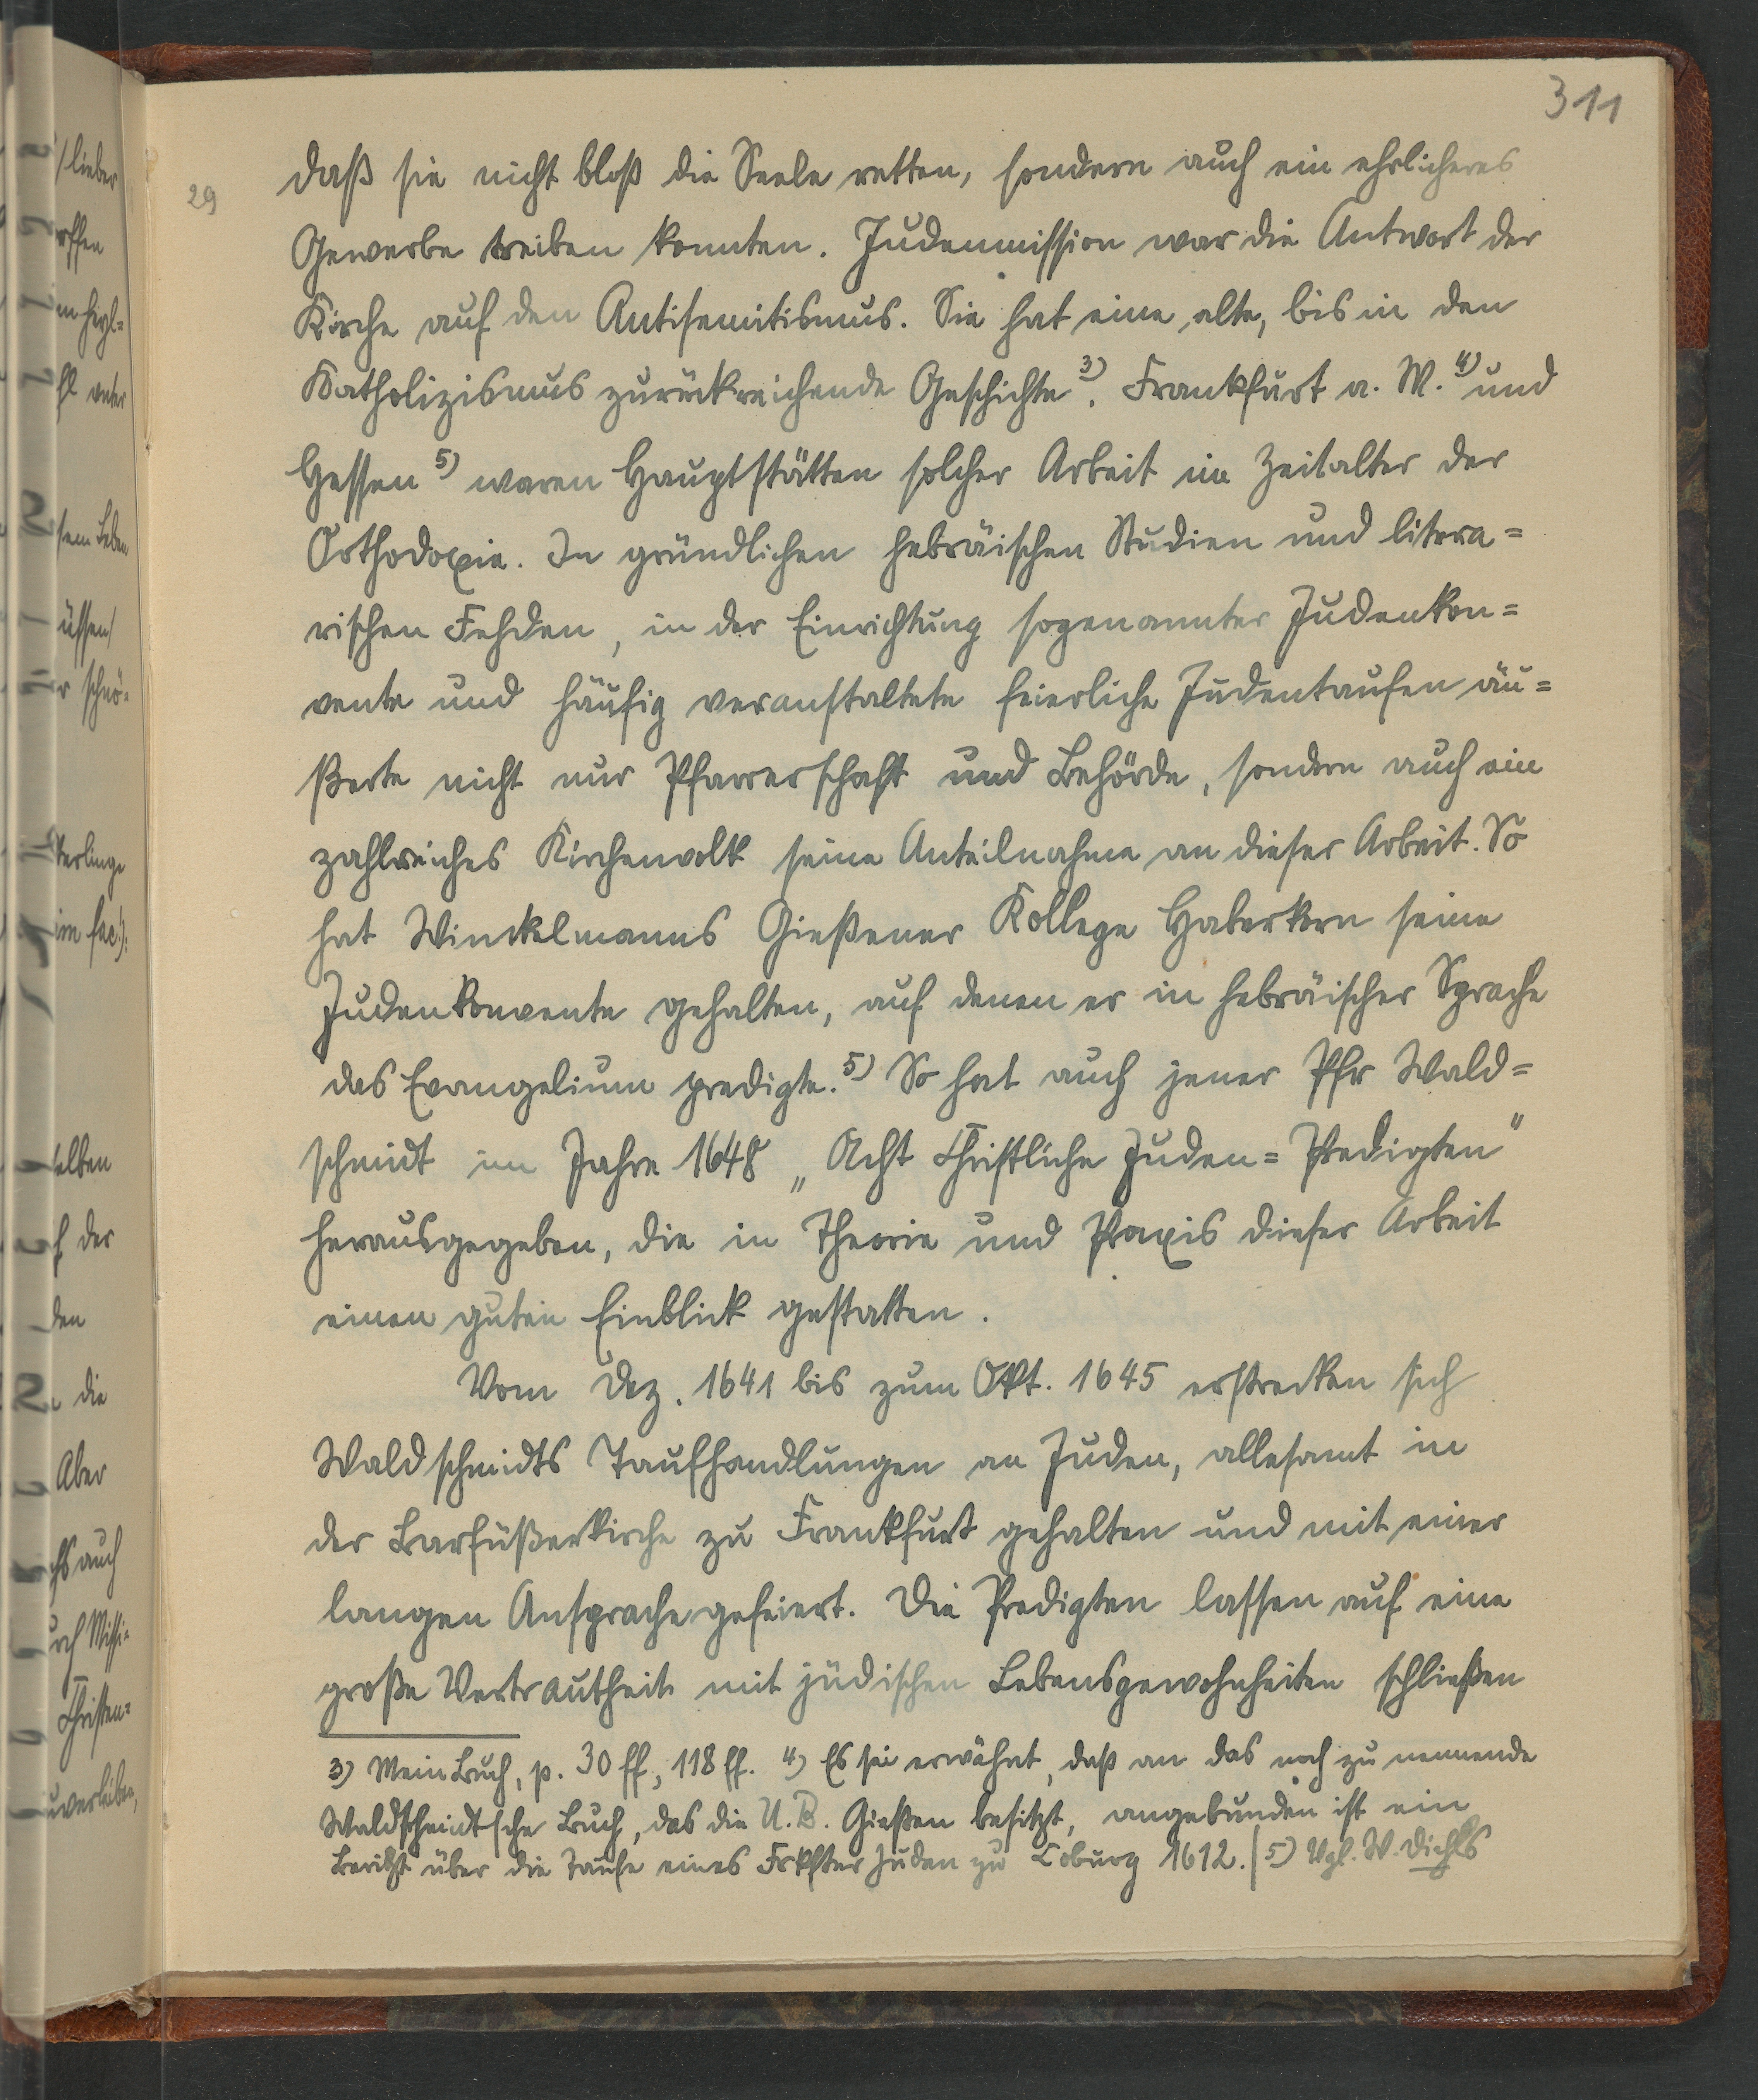 311
29
daß sie nicht bloß die Seele retten, sondern auch ein ehrlicheres
Gewerbe treiben konnten. Judenmission war die Antwort der
Kirche auf den Antisemitismus. Sie hat eine alte, bis in den
Katholizismus zurückreichende Geschichte 3). Frankfurt a. M. 4) und
Hessen 5) waren Hauptstätten solcher Arbeit im Zeitalter der
Orthodoxie. In gründlichen hebräischen Studien und litera=
rischen Fehden, in der Einrichtung sogenannter Judenkon=
vente und häufig veranstaltete feierliche Judentaufen äu=
ßerte nicht nur Pfarrerschaft und Behörde, sondern auch ein
zahlreiches Kirchenvolk seine Anteilnahme an dieser Arbeit. So
hat Winckelmanns Gießener Kollege Haberkorn seine
Judenkonvente gehalten, auf denen er in hebräischer Sprache
das Evangelium predigte. 5) So hat auch jener Pfr Wald=
schmidt im Jahre 1648 „Acht Christliche Juden=Predigten"
herausgegeben, die in Theorie und Praxis dieser Arbeit
einen guten Einblick gestatten.
Vom Dez. 1641 bis zum Okt. 1645 erstrecken sich
Waldschmidts Taufhandlungen an Juden, allesamt in
der Barfüßerkirche zu Frankfurt gehalten und mit einer
langen Ansprache gefeiert. Die Predigten lassen auf eine
große Vertrautheit mit jüdischen Lebensgewohnheiten schließen
3) Mein Buch, p. 30 ff., 118 ff. 4) Es sei erwähnt, daß an das noch zu nennende
Waldschmidtsche Buch, das die U.B. Gießen besitzt, angebunden ist ein
Bericht über die Taufe eines Frkfter Juden zu Coburg 1612. | 5) Vgl. W. Diehls